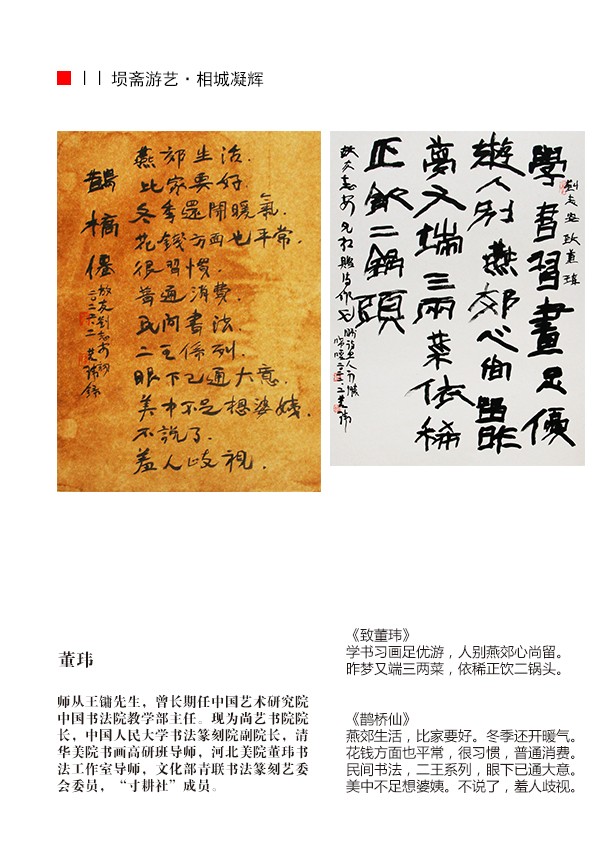 埙斋游艺·相城凝辉
鹊桥仙
燕郊生活.
比家要好.
冬季還開暖氣.
花錢方面也平常.
很習慣.
普通消費.
民间書法.
二王係列.
眼下已通大意.
美中不足想婆姨.
不說了.
羞人歧視.
學書習畫足優
遊人别燕郊心尚留昨
夢又端三兩菜依稀
正飲二鍋頭
董玮
师从王镛先生，曾长期任中国艺术研究院
中国书法院教学部主任。现为尚艺书院院
长，中国人民大学书法篆刻院副院长，清
华美院书画高研班导师，河北美院董玮书
法工作室导师，文化部青联书法篆刻艺委
会委员，“寸耕社”成员。
《致董玮》
学书习画足优游，人别燕郊心尚留。
昨梦又端三两菜，依稀正饮二锅头。
《鹊桥仙》
燕郊生活，比家要好。冬季还开暖气。
花钱方面也平常，很习惯，普通消费。
民间书法，二王系列，眼下已通大意。
美中不足想婆姨。不说了，羞人歧视。